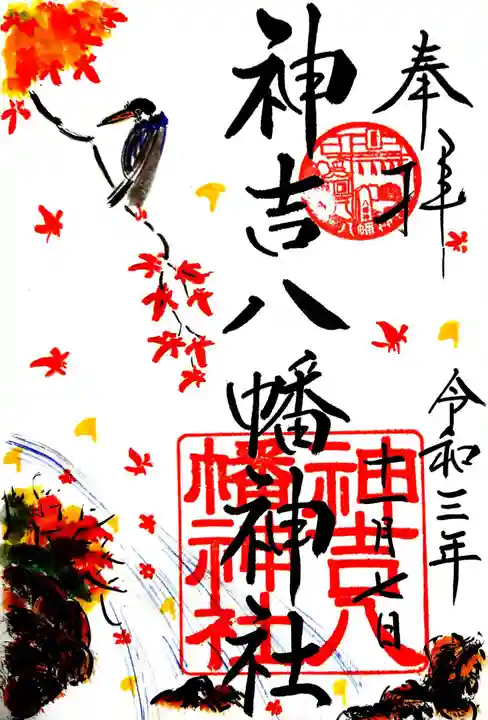 奉拝
令和三年
十一月七日
神吉八幡神社
神吉八
幡神社
八幡神社